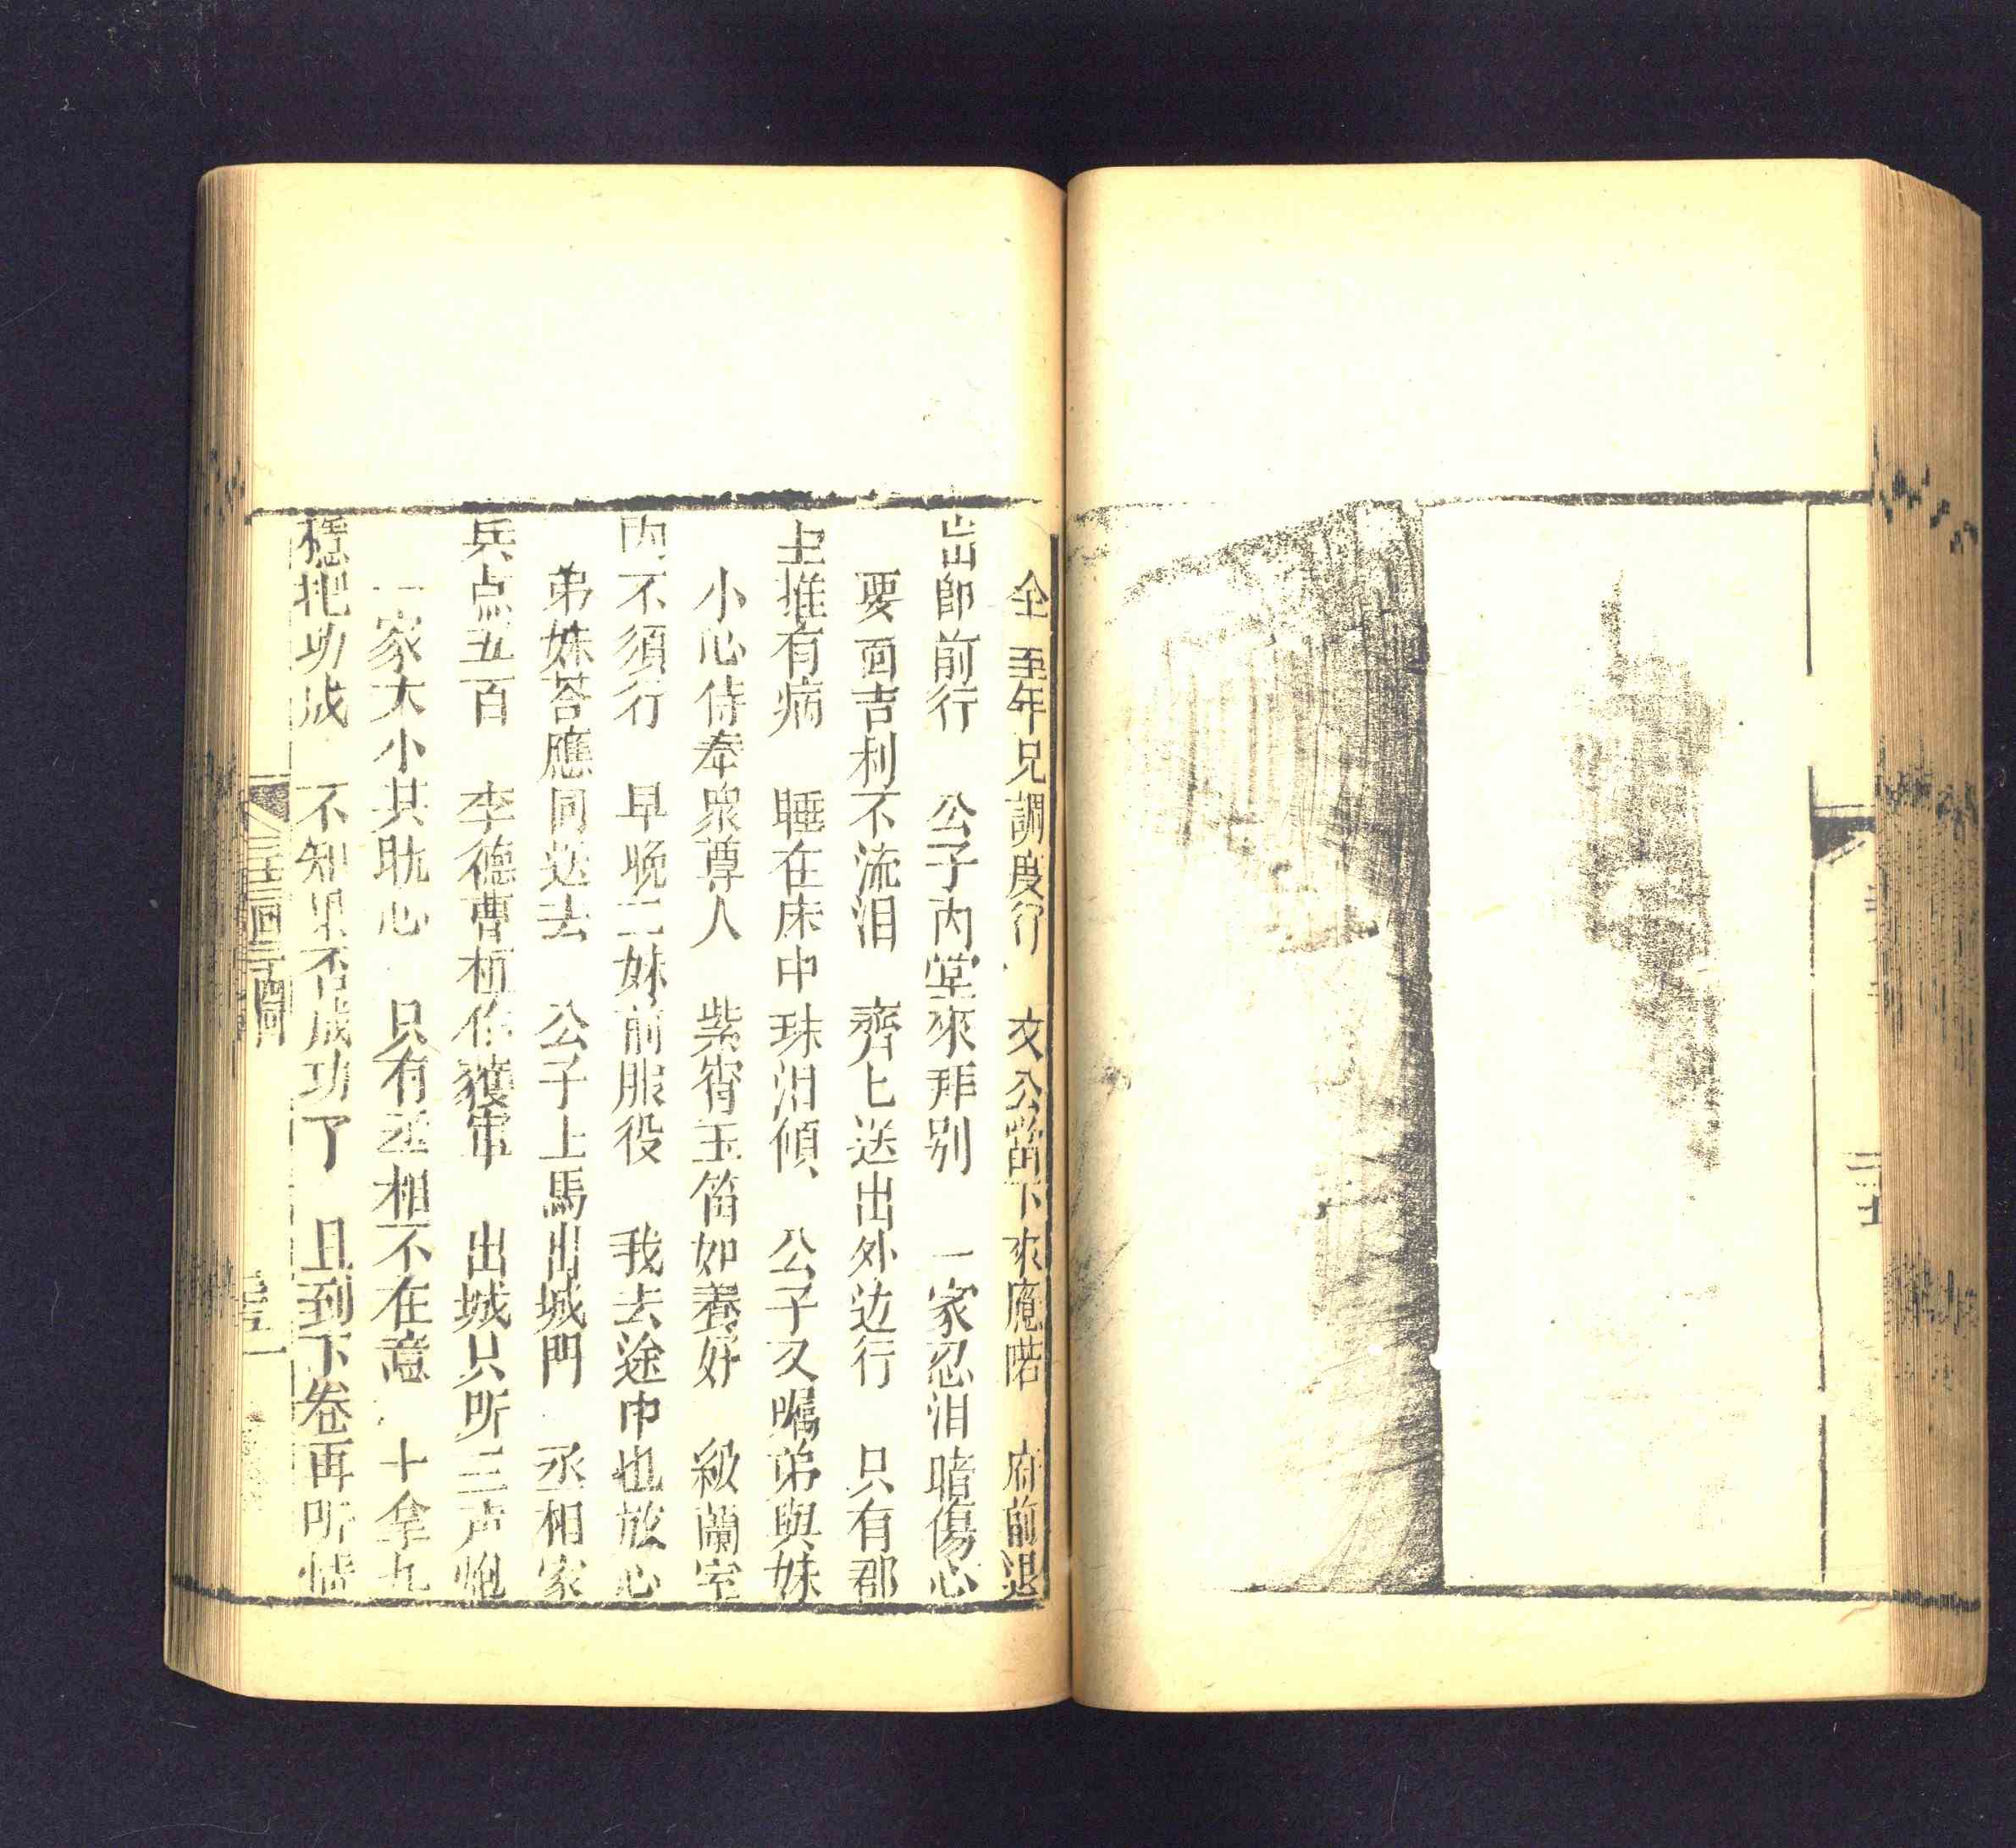 全至年兄調度行 文公當下來應喏 府前退
出師前行 公子内堂來拜别 一家忍泪暗傷心
要面吉利不流泪 齊匕送出外边行 只有郡
主推有病 睡在床中珠泪傾 公子又囑弟與妹
小心侍奉眾尊人 紫宵玉笛如養好 級蘭室
内不須行 早晚二妹前服役 我去途中也放心
弟妹荅應同送去 公子上馬出城門 丞相家
兵点五百 李德曹柄作護軍 出城只听三声炮
一家大小共耽心 只有丞相不在意 十拿九
穩把功成 不知果否成功了 且到下卷再听情